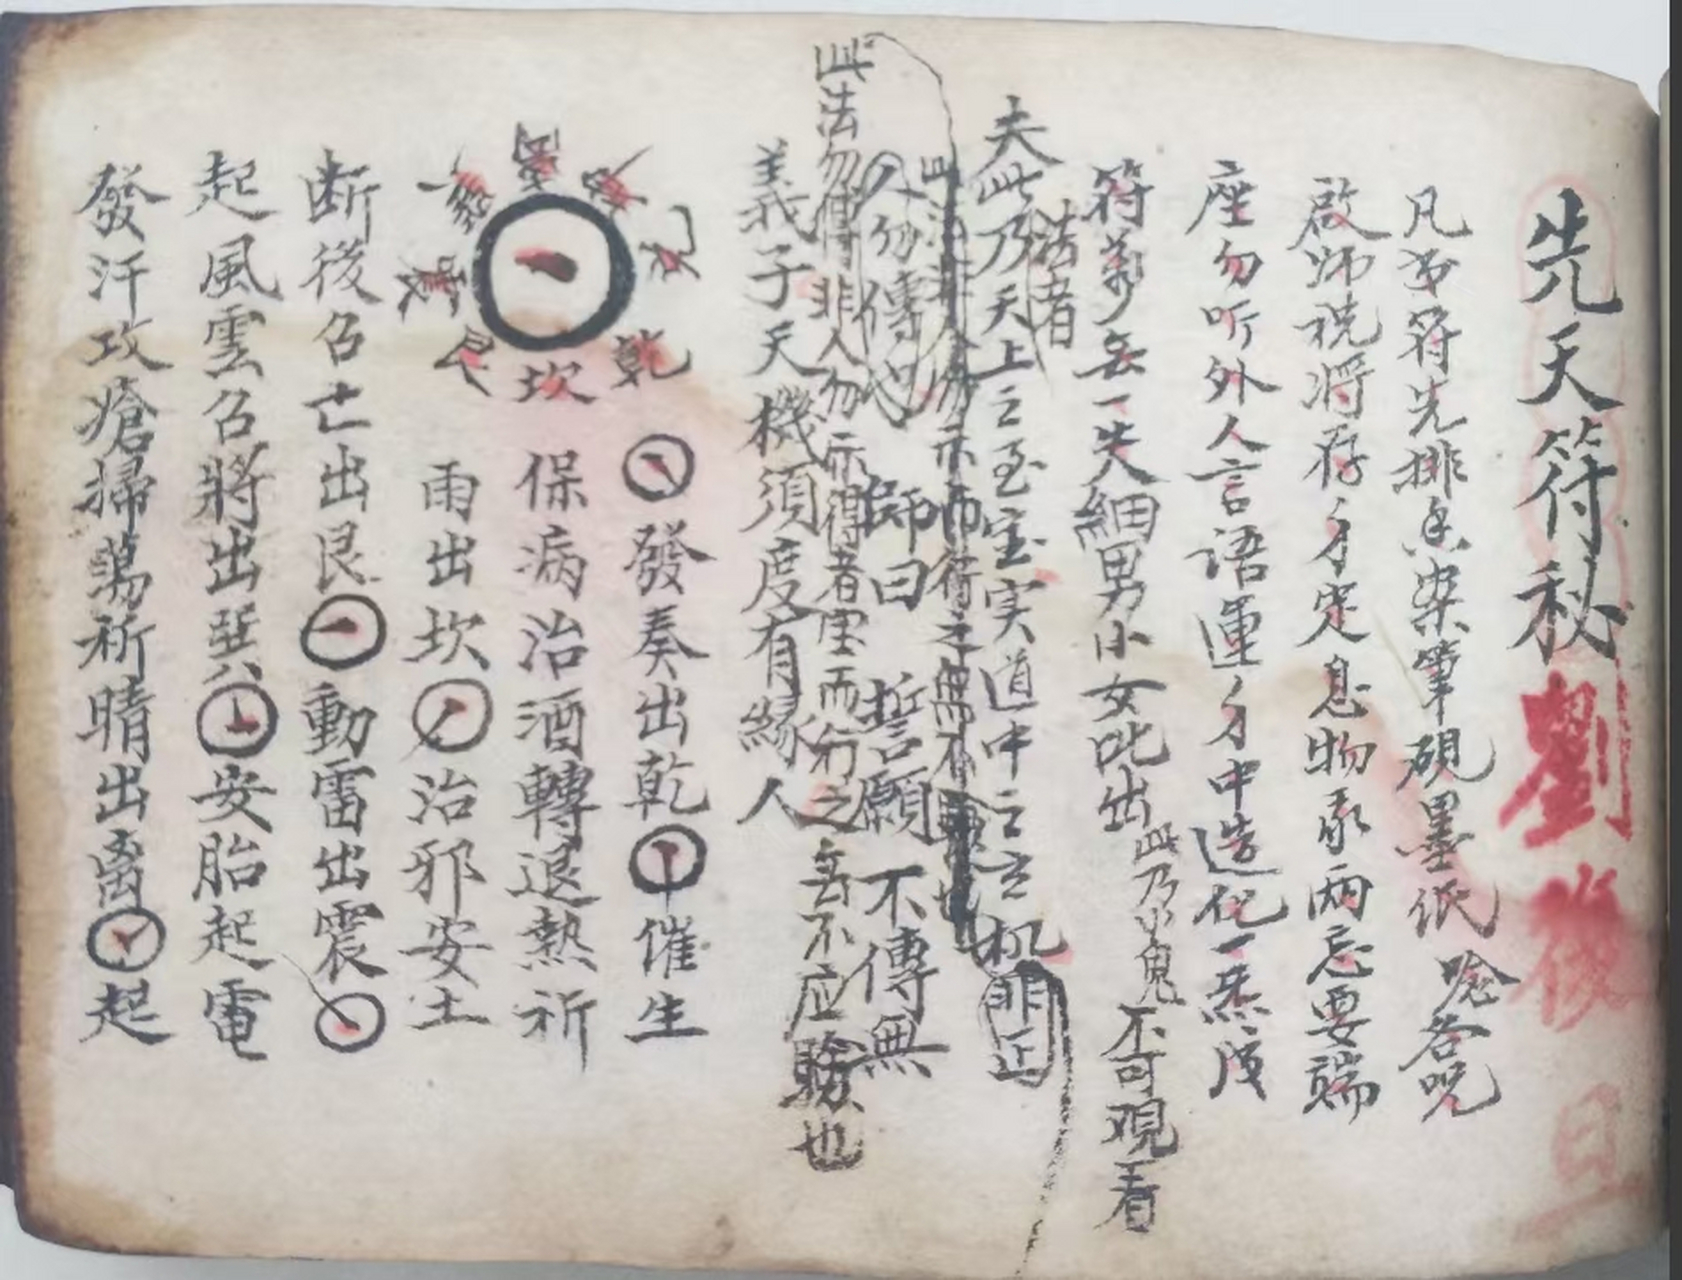 先天符秘劉後
凡書符先排香案筆硯墨紙唸各呪
啟师祝将存身定息物我两忘要端
座勿听外人言语運身中造化一炁成
符萬無一失細男小女叱出此乃小鬼不可观看
法者
夫此乃天上之至宝实道中之玄机非正
人勿傳也師曰誓願不傳無
此法勿得非人勿示得者宝而行之無不应驗也
義子天機須度有緣人
發奏出乾催生
離
坤
兌
乾
坎
艮
震
巽
保病治酒轉退熱祈
雨出坎治邪安土
断後召亡出艮動雷出震
起風雲召將出巽安胎起電
發汗攻瘡掃蕩祈晴出离起